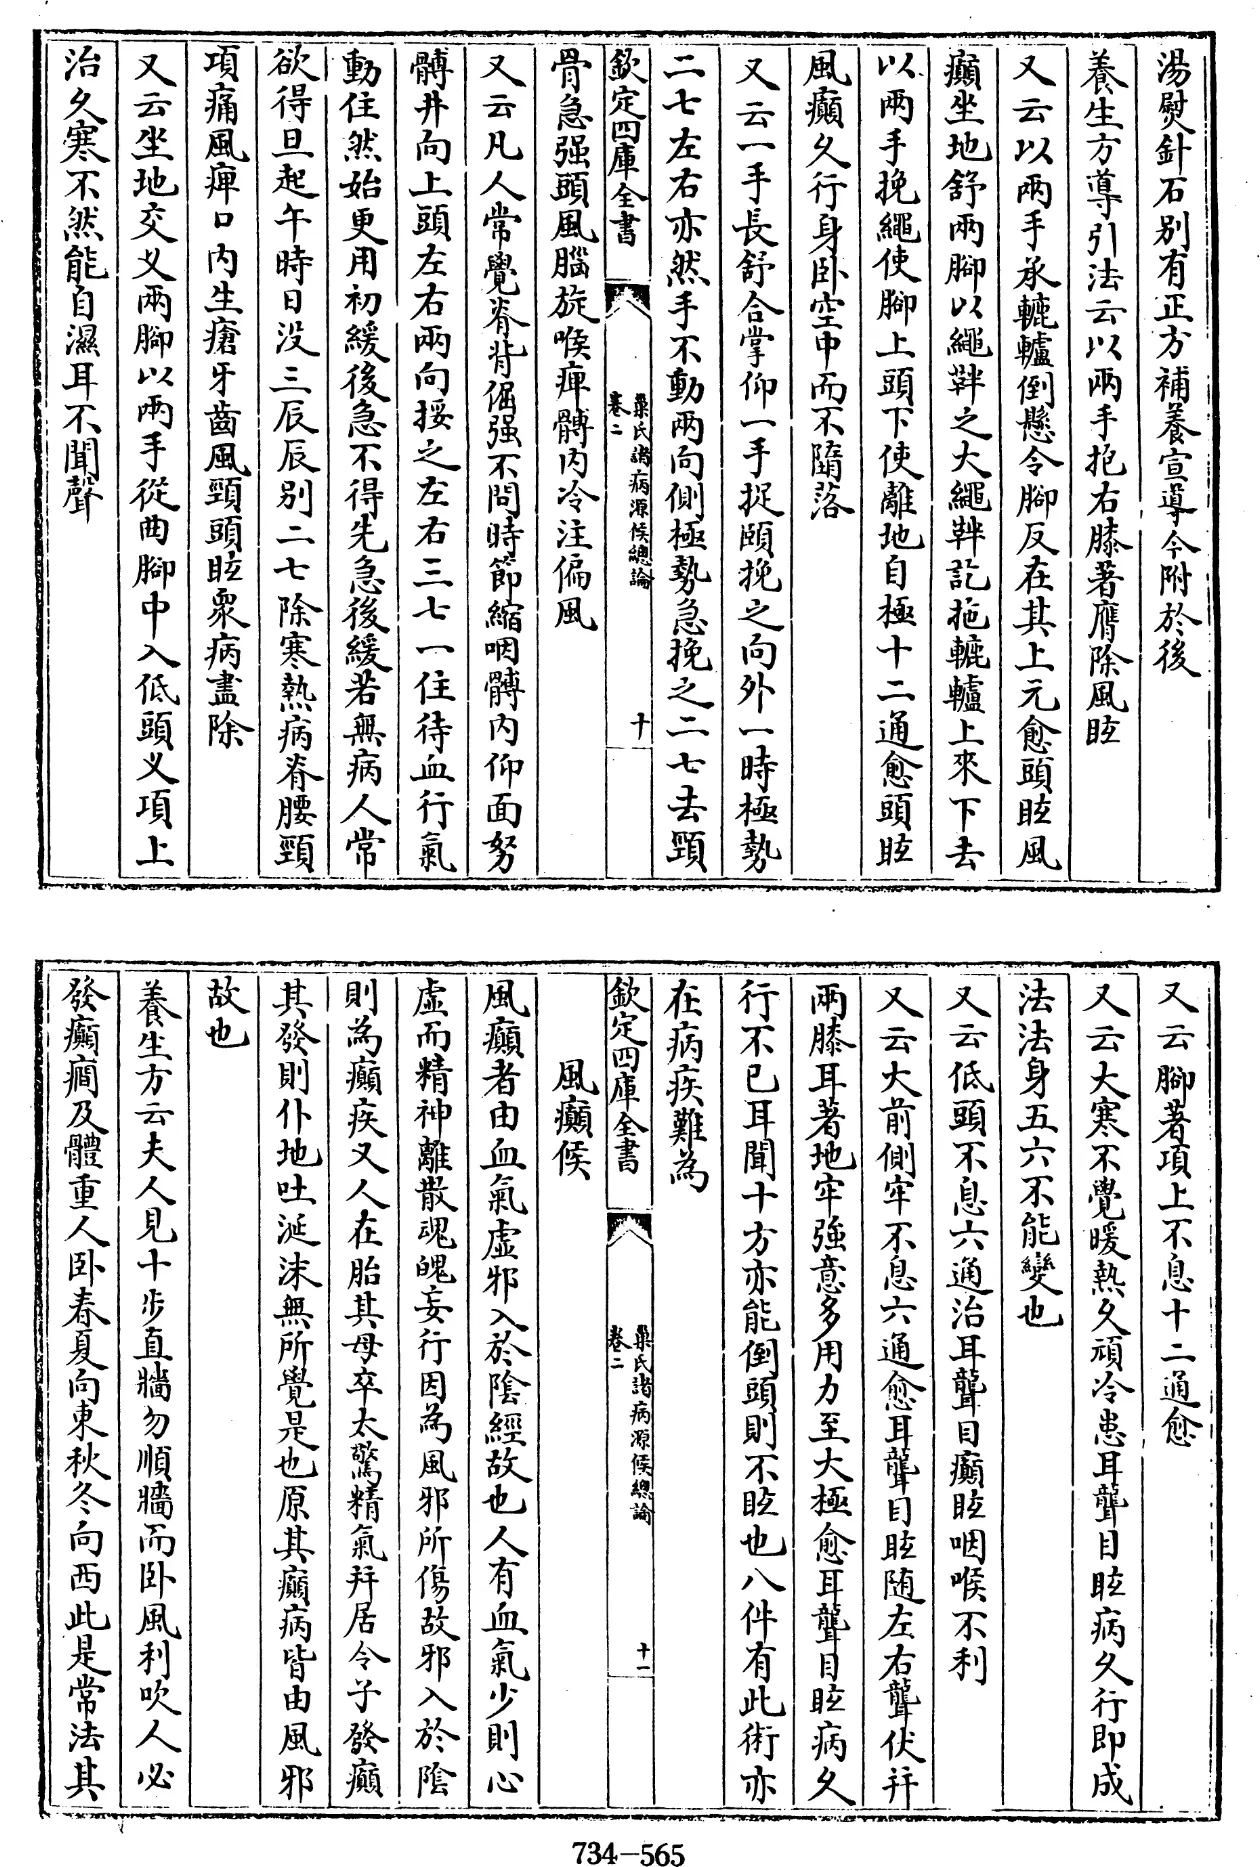 湯熨針石别有正方補養宣導今附於後
養生方導引法云以兩手抱右膝著膺除風眩
又云以兩手承轆轤倒懸令腳反在其上元愈頭眩風
癲坐地舒兩腳以繩靽之大繩靽訖拖轆轤上來下去
以兩手挽繩使腳上頭下使離地自極十二通愈頭眩
風癲久行身卧空中而不隋落
又云一手長舒合掌仰一手捉頤挽之向外一時極勢
二七左右亦然手不動兩向側極勢急挽之二七去頸
欽定四庫全書
巢氏諸病源候總論
卷二
十
骨急强頭風腦旋喉痺髆内冷注偏風
又云凡人常覺脊背倔强不問時節縮咽髆内仰面努
髆井向上頭左右兩向挼之左右三七一住待血行氣
動住然始更用初緩後急不得先急後緩若無病人常
欲得旦起午時日没三辰辰别二七除寒熱病脊腰頸
項痛風痺口内生瘡牙齒風頸頭眩衆病盡除
又云坐地交义兩腳以兩手從曲腳中入低頭义項上
治久寒不然能自濕耳不聞聲
又云腳著項上不息十二通愈
又云大寒不覺暖熱久頑冷患耳聾目眩病久行即成
法法身五六不能變也
又云低頭不息六通治耳聾目癲眩咽喉不利
又云大前側牢不息六通愈耳聾目眩随左右聾伏并
兩膝耳著地牢強意多用力至大極愈耳聾目眩病久
行不已耳聞十方亦能倒頭則不眩也八件有此術亦
在病疾難為
欽定四庫全書
巢氏諸病源候總論
卷二
十一
風癲候
風癲者由血氣虚邪入於陰經故也人有血氣少則心
虚而精神離散魂魄妄行因為風邪所傷故邪入於陰
則為癲疾又人在胎其母卒太驚精氣并居令子發癲
其發則仆地吐涎沫無所覺是也原其癲病皆由風邪
故也
養生方云夫人見十步直牆勿順牆而卧風利吹人必
發癲癇及體重人卧春夏向東秋冬向西此是常法其
734-565